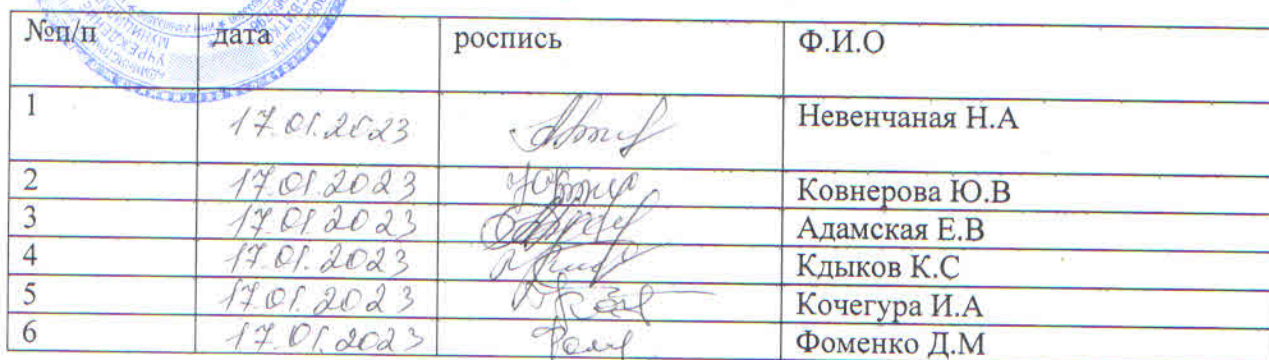 №п/п дата роспись Ф.И.О
1 17.01.2023 Невенчаная Н.А
2 17.01.2023 Ковнерова Ю.В
3 17.01.2023 Адамская Е.В
4 17.01.2023 Кдыков К.С
5 17.01.2023 Кочегура И.А
6 17.01.2023 Фоменко Д.М